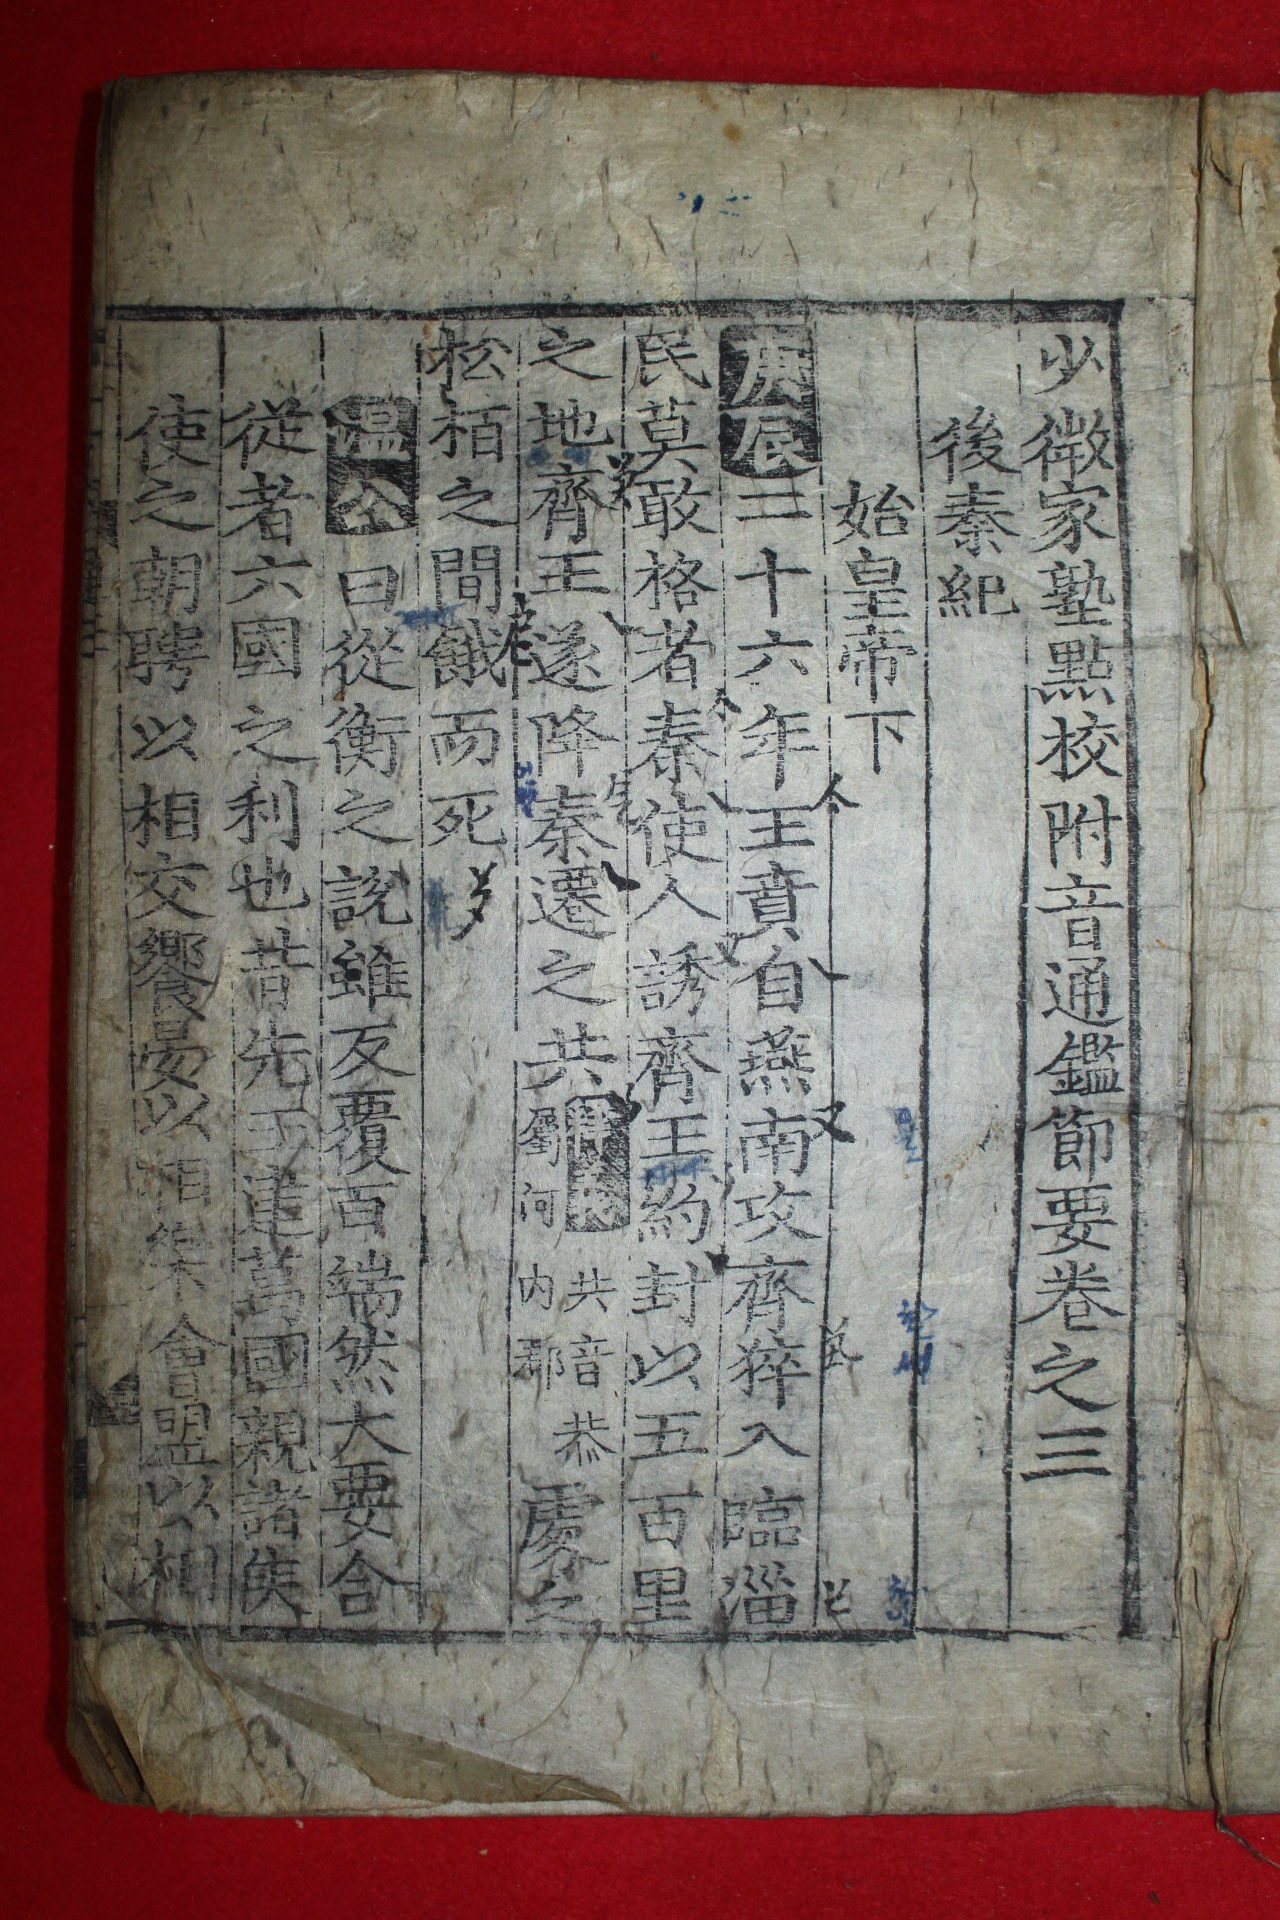 少微家塾點校附音通鑑節要卷之三
後秦紀
始皇帝下
庚辰二十六年王賁自燕南攻齊猝入臨淄
民莫敢格者秦使人誘齊王約封以五百里
之地齊王遂降秦遷之共共音恭屬河内郡處之
松栢之間餓而死
温公曰從衡之說雖反覆百端然大要合
從者六國之利也昔先王建萬國親諸侯
使之朝聘以相交饗宴以相樂會盟以相